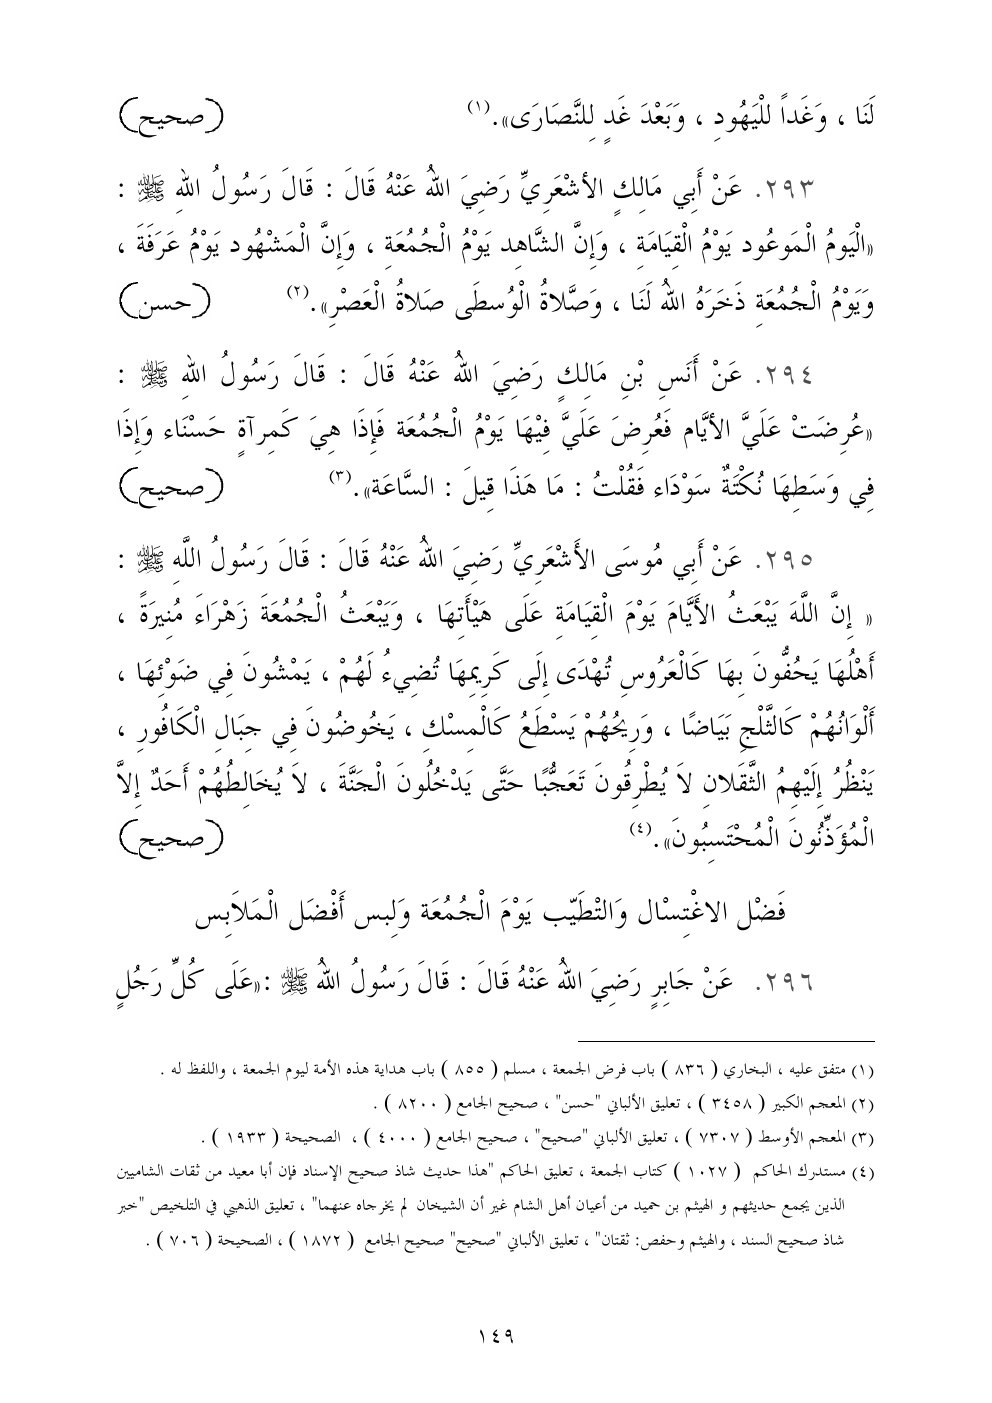 لَنَا ، وَغَداً للْيَهُودِ ، وَبَعْدَ غَدٍ لِلنَّصَارَى».(١) (صحيح)
٢٩٣. عَنْ أَبِي مَالِكٍ الأشْعَرِيِّ رَضِيَ اللهُ عَنْهُ قَالَ : قَالَ رَسُولُ اللهِ ﷺ :
«الْيَومُ الْمَوعُود يَوْمُ الْقِيَامَةِ ، وَإِنَّ الشَّاهِد يَوْمُ الْجُمُعَةِ ، وَإِنَّ الْمَشْهُود يَوْمُ عَرَفَةَ ،
وَيَوْمُ الْجُمُعَةِ ذَخَرَهُ اللهُ لَنَا ، وَصَّلاةُ الْوُسطَى صَلاةُ الْعَصْرِ».(٢) (حسن)
٢٩٤. عَنْ أَنَسِ بْنِ مَالِكٍ رَضِيَ اللهُ عَنْهُ قَالَ : قَالَ رَسُولُ اللهِ ﷺ :
«عُرِضَتْ عَلَيَّ الأيَّام فَعُرِضَ عَلَيَّ فِيْهَا يَوْمُ الْجُمُعَة فَإِذَا هِيَ كَمِرآةٍ حَسْنَاء وَإِذَا
فِي وَسَطِهَا نُكْتَةٌ سَوْدَاء فَقُلْتُ : مَا هَذَا قِيلَ : السَّاعَة».(٣) (صحيح)
٢٩٥. عَنْ أَبِي مُوسَى الأَشْعَرِيِّ رَضِيَ اللهُ عَنْهُ قَالَ : قَالَ رَسُولُ اللَّهِ ﷺ :
« إِنَّ اللَّهَ يَبْعَثُ الأَيَّامَ يَوْمَ الْقِيَامَةِ عَلَى هَيْأَتِهَا ، وَيَبْعَثُ الْجُمُعَةَ زَهْرَاءَ مُنِيرَةً ،
أَهْلُهَا يَحُفُّونَ بِهَا كَالْعَرُوسِ تُهْدَى إِلَى كَرِيمِهَا تُضِيءُ لَهُمْ ، يَمْشُونَ فِي ضَوْئِهَا ،
أَلْوَانُهُمْ كَالثَّلْجِ بَيَاضًا ، وَرِيحُهُمْ يَسْطَعُ كَالْمِسْكِ ، يَخُوضُونَ فِي جِبَالِ الْكَافُورِ ،
يَنْظُرُ إِلَيْهِمُ الثَّقَلانِ لاَ يُطْرِقُونَ تَعَجُّبًا حَتَّى يَدْخُلُونَ الْجَنَّةَ ، لاَ يُخَالِطُهُمْ أَحَدٌ إِلاَّ
الْمُؤَذِّنُونَ الْمُحْتَسِبُونَ».(٤) (صحيح)
فَضْل الاغْتِسْال وَالتْطَيّب يَوْمَ الْجُمُعَة وَلِبس أَفْضَل الْمَلاَبِس
٢٩٦. عَنْ جَابِرٍ رَضِيَ اللهُ عَنْهُ قَالَ : قَالَ رَسُولُ اللهُ ﷺ :«عَلَى كُلِّ رَجُلٍ
(١) متفق عليه ، البخاري ( ٨٣٦ ) باب فرض الجمعة ، مسلم ( ٨٥٥ ) باب هداية هذه الأمة ليوم الجمعة ، واللفظ له .
(٢) المعجم الكبير ( ٣٤٥٨ ) ، تعليق الألباني "حسن" ، صحيح الجامع ( ٨٢٠٠ ) .
(٣) المعجم الأوسط ( ٧٣٠٧ ) ، تعليق الألباني "صحيح" ، صحيح الجامع ( ٤٠٠٠ ) ، الصحيحة ( ١٩٣٣ ) .
(٤) مستدرك الحاكم ( ١٠٢٧ ) كتاب الجمعة ، تعليق الحاكم "هذا حديث شاذ صحيح الإسناد فإن أبا معيد من ثقات الشاميين
الذين يجمع حديثهم و الهيثم بن حميد من أعيان أهل الشام غير أن الشيخان لم يخرجاه عنهما" ، تعليق الذهبي في التلخيص "خبر
شاذ صحيح السند ، والهيثم وحفص: ثقتان" ، تعليق الألباني "صحيح" صحيح الجامع ( ١٨٧٢ ) ، الصحيحة ( ٧٠٦ ) .
١٤٩